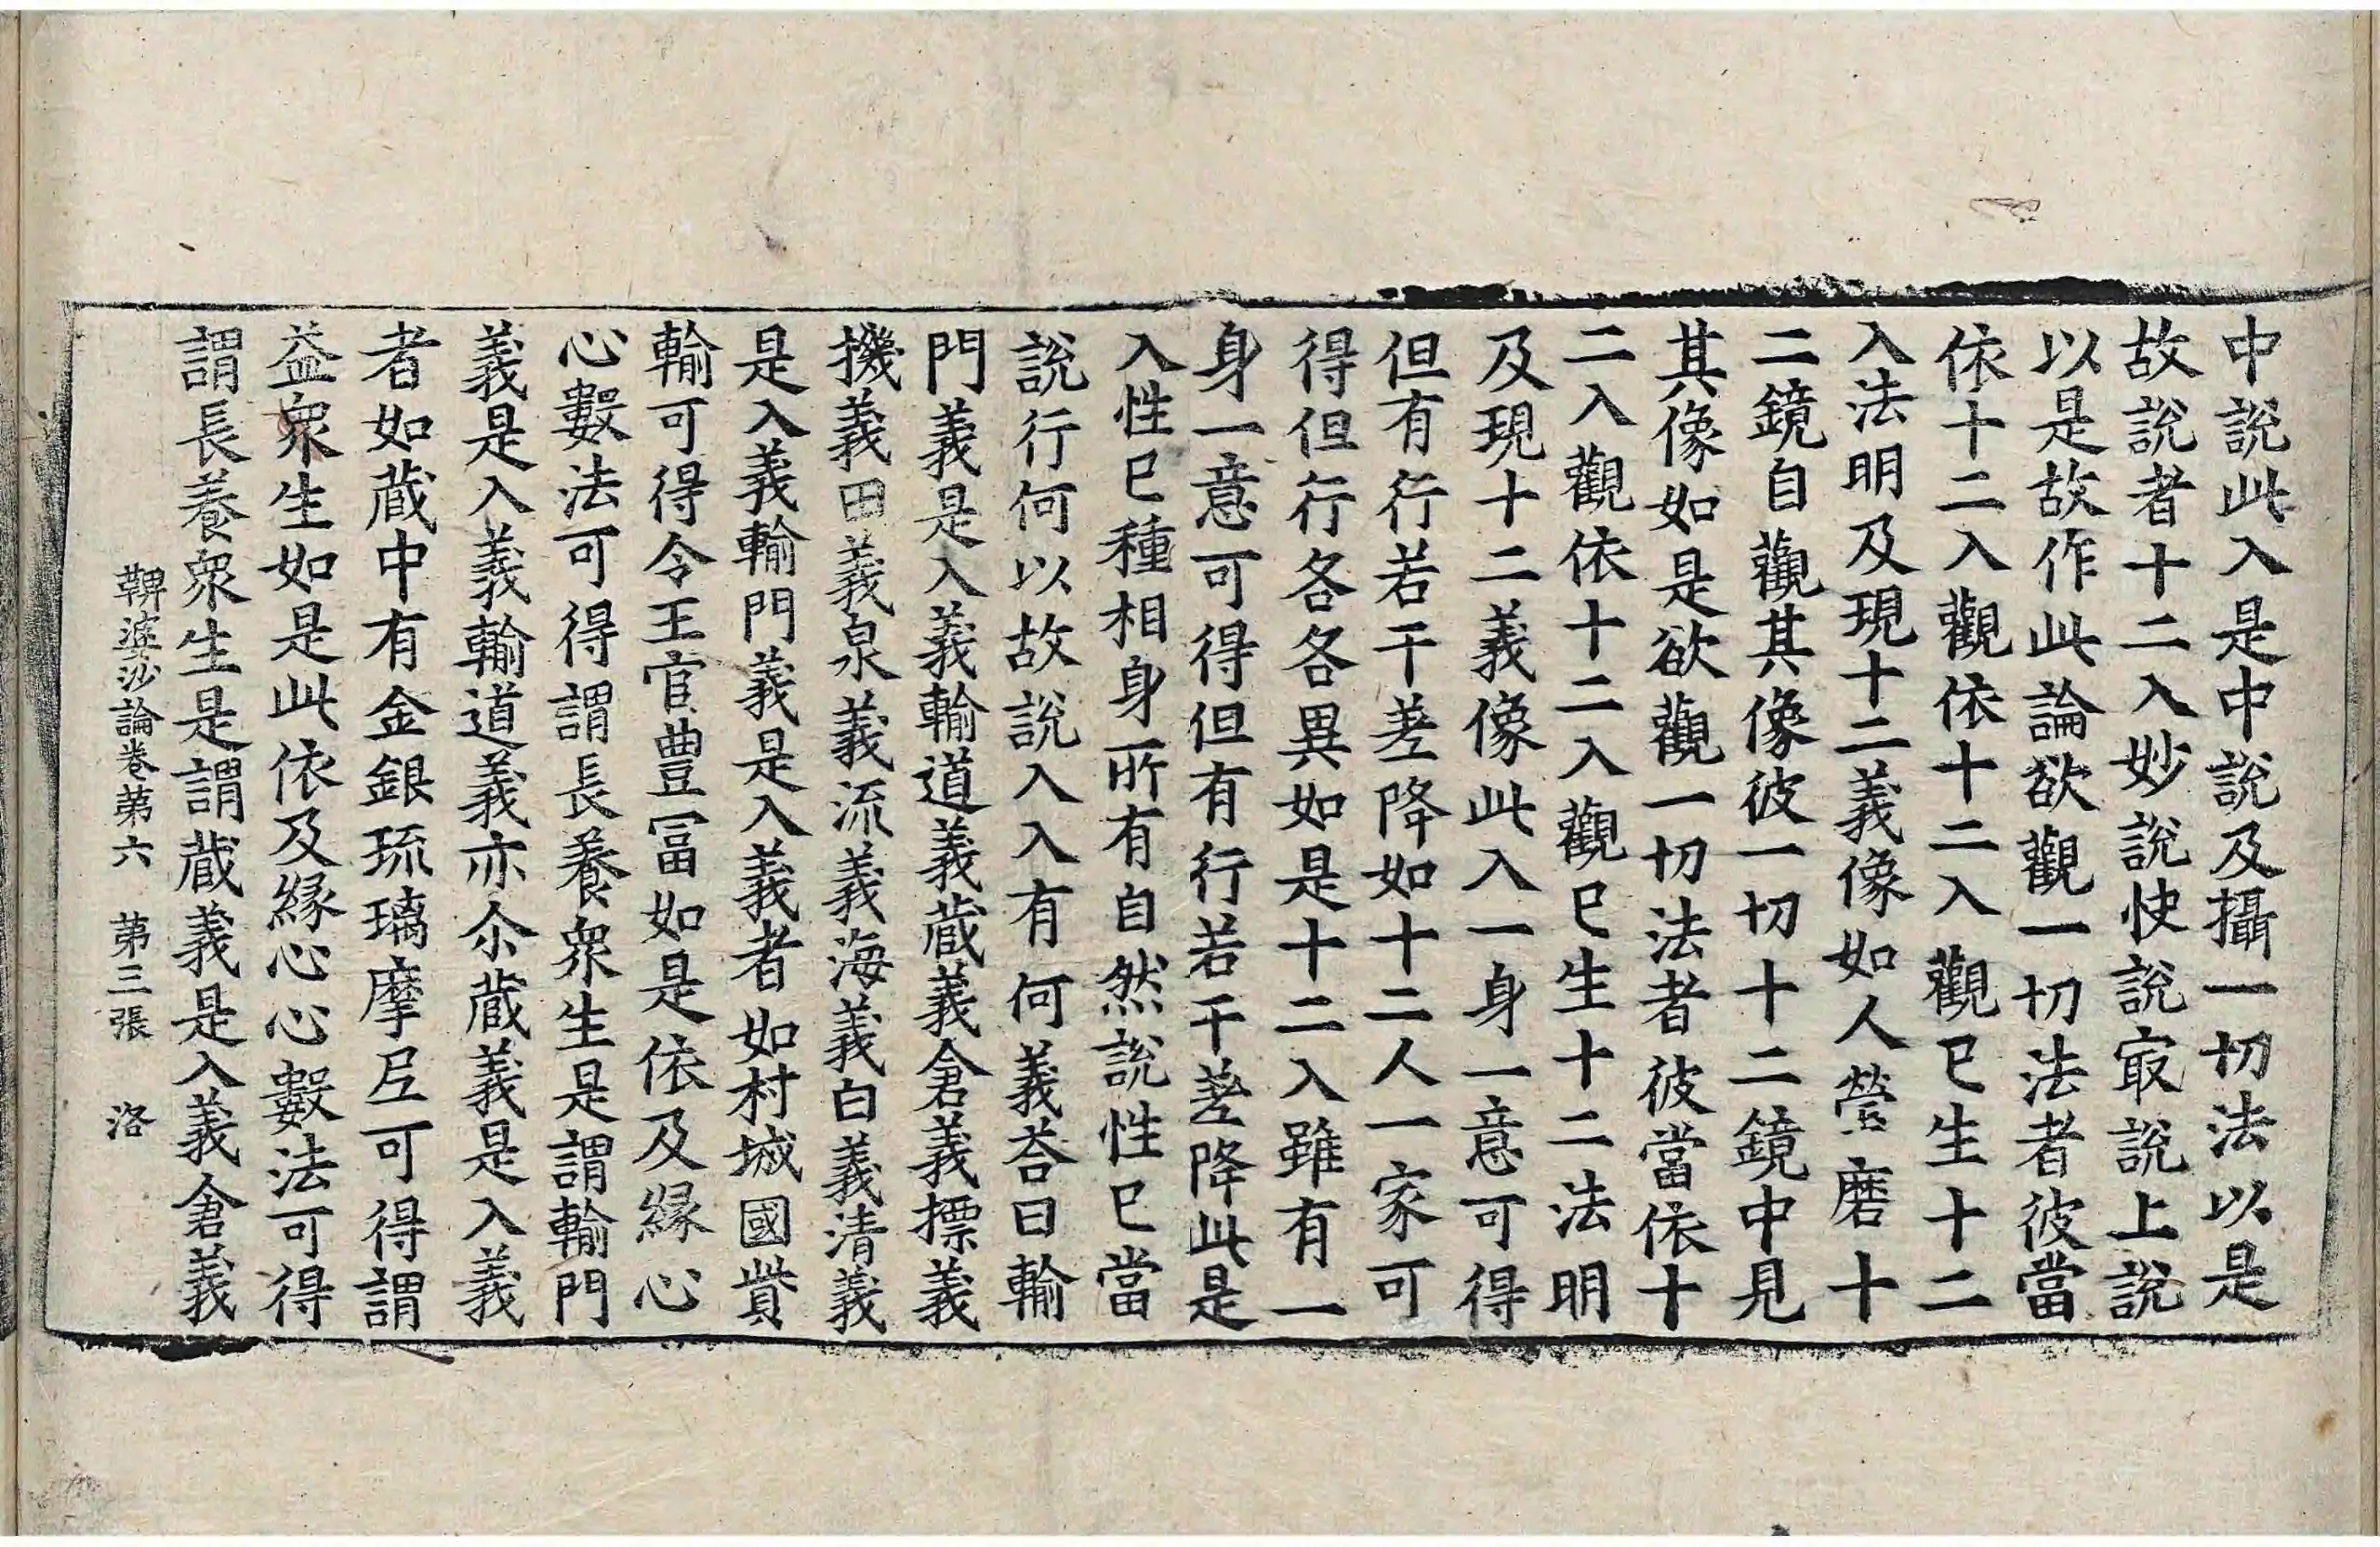 中說此入是中說及攝一切法以是
故說者十二入妙說快說㝡說上說
以是故作此論欲觀一切法者彼當
依十二入觀依十二入觀已生十二
入法明及現十二義像如人瑩磨十
二鏡自觀其像彼一切十二鏡中見
其像如是欲觀一切法者彼當依十
二入觀依十二入觀已生十二法明
及現十二義像此入一身一意可得
但有行若干差降如十二人一家可
得但行各各異如是十二入雖有一
身一意可得但有行若干差降此是
入性已種相身所有自然說性已當
說行何以故說入入有何義荅曰輸
門義是入義輸道義蔵義倉義摽義
機義田義泉義流義海義白義清義
是入義輸門義是入義者如村城國貲
輸可得令王官豊冨如是依及緣心
心數法可得謂長養衆生是謂輸門
義是入義輸道義亦尒蔵義是入義
者如蔵中有金銀琉璃摩𡰱可得謂
益衆生如是此依及緣心心數法可得
謂長養衆生是謂蔵義是入義倉義
鞞婆沙論卷第六　第三張　洛